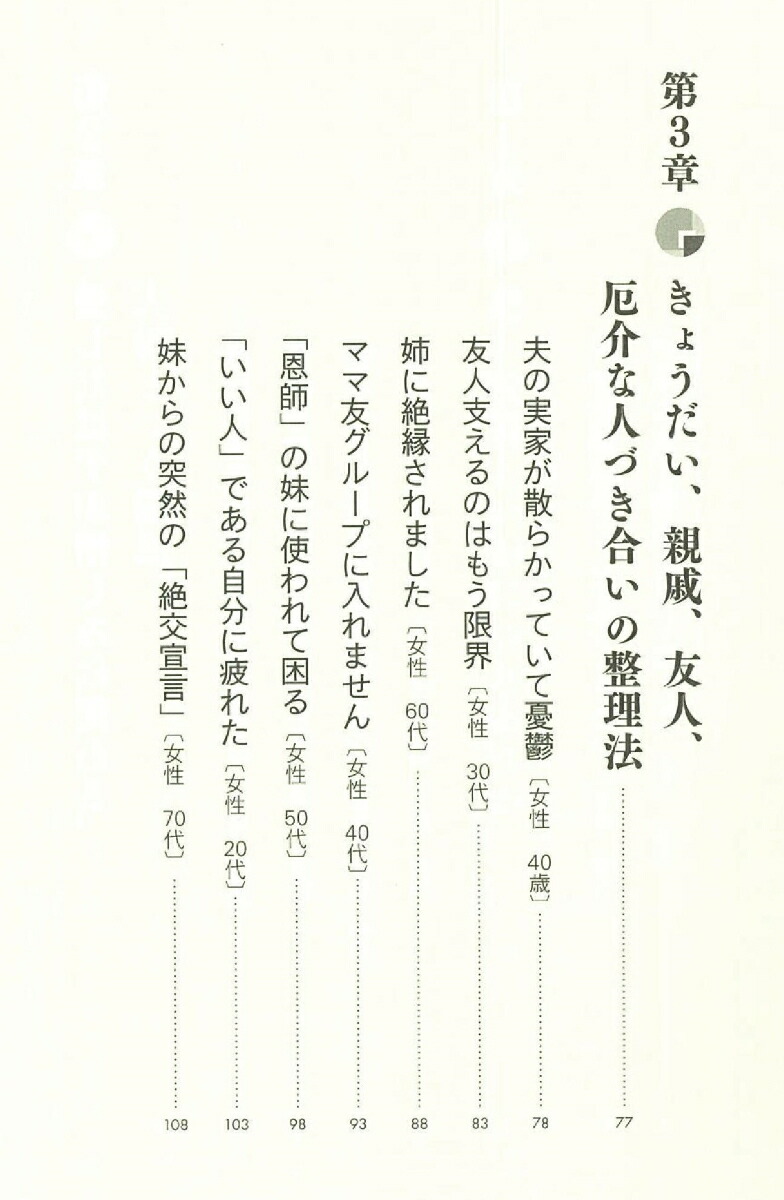 第3章
きょうだい、親戚、友人、
厄介な人づき合いの整理法……77
夫の実家が散らかっていて憂鬱〔女性 40歳〕……78
友人支えるのはもう限界〔女性 30代〕……83
姉に絶縁されました〔女性 60代〕……88
ママ友グループに入れません〔女性 40代〕……93
「恩師」の妹に使われて困る〔女性 50代〕……98
「いい人」である自分に疲れた〔女性 20代〕……103
妹からの突然の「絶交宣言」〔女性 70代〕……108